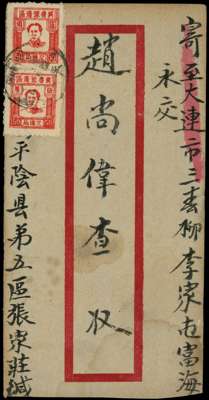 寄至大連市三春柳李家屯富海
永交
趙尚偉查收
平陰县第五區張家莊緘